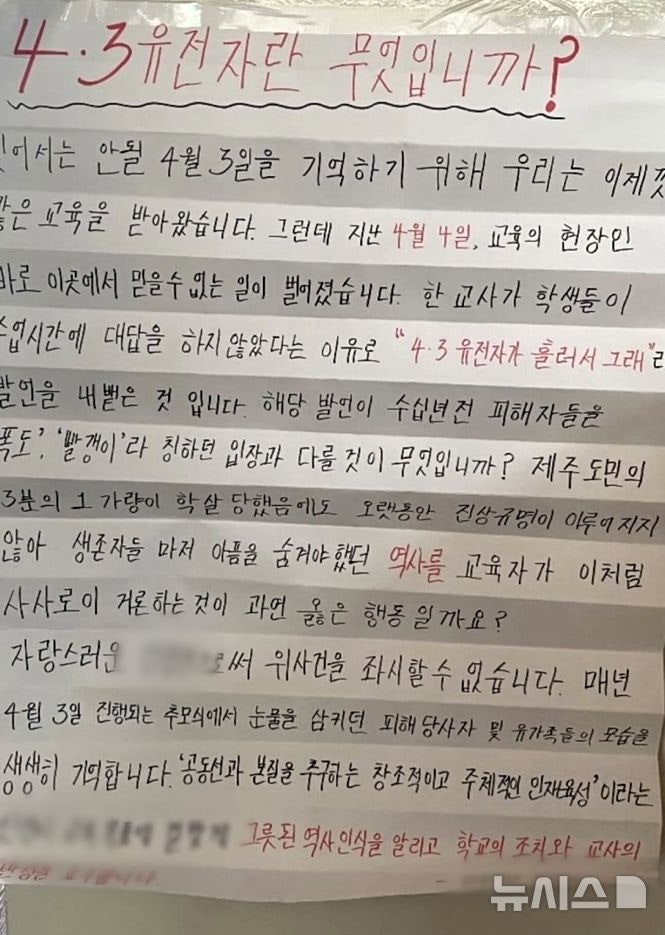 4·3유전자란 무엇입니까?
있어서는 안될 4월 3일을 기억하기 위해 우리는 이제껏
많은 교육을 받아왔습니다. 그런데 지난 4월 4일, 교육의 현장인
바로 이곳에서 믿을수 없는 일이 벌어졌습니다. 한 교사가 학생들이
수업시간에 대답을 하지않았다는 이유로 “4·3 유전자가 흘러서 그래”라
발언을 내뱉은 것 입니다. 해당 발언이 수십년전 피해자들을
폭도’, ‘빨갱이’라 칭하던 입장과 다를것이 무엇입니까? 제주도민의
3분의 1 가량이 학살 당했음에도 오랫동안 진상규명이 이루어지지
않아 생존자들 마저 아픔을 숨겨야했던 역사를 교육자가 이처럼
사사로이 거론하는것이 과연 옳은 행동일까요?
자랑스러운 로써 위사건을 좌시할수 없습니다. 매년
4월 3일 진행되는 추모식에서 눈물을 삼키던 피해당사자 및 유가족들의 모습을
생생히 기억합니다. ‘공동선과 본질을 추구하는 창조적이고 주체적인 인재육성’이라는
그릇된 역사인식을 알리고 학교의 조치와 교사의
뉴시스